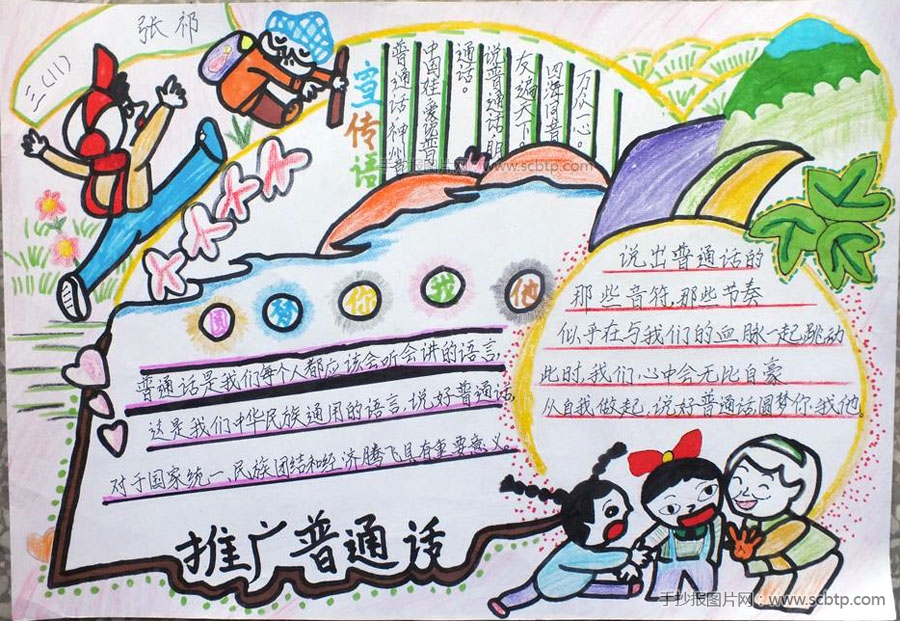 三(11)
张祁
宣传语
普通话,神州
中国娃,爱说普
通话。
说普通话,朋
友遍天下。
四海同音
万众一心。
圆 梦 你 我 他
普通话是我们每个人都应该会听会讲的语言,
这是我们中华民族通用的语言,说好普通话,
对于国家统一,民族团结和经济腾飞具有重要意义。
说出普通话的
那些音符,那些节奏
似乎在与我们的血脉一起跳动
此时,我们心中会无比自豪
从自我做起,说好普通话,圆梦你、我、他。
推广普通话
手抄报图片网 www.scbtp.com
手抄报图片网:www.scbtp.com